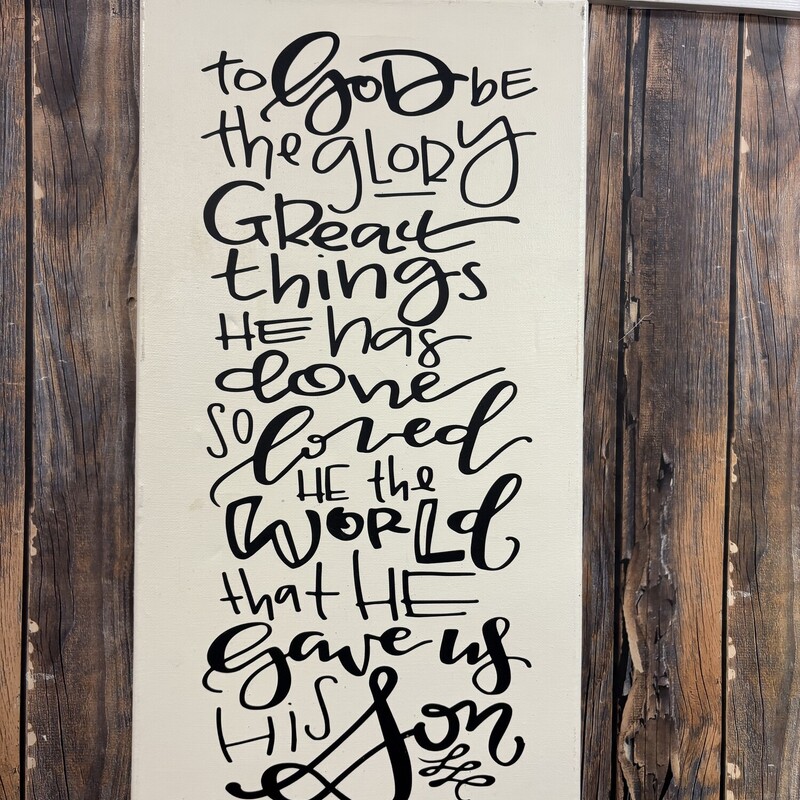 to GoD bE
the gLORy
GReat
things
HE has
done
so loved
HE the
WORLd
that HE
gave us
HiS Son